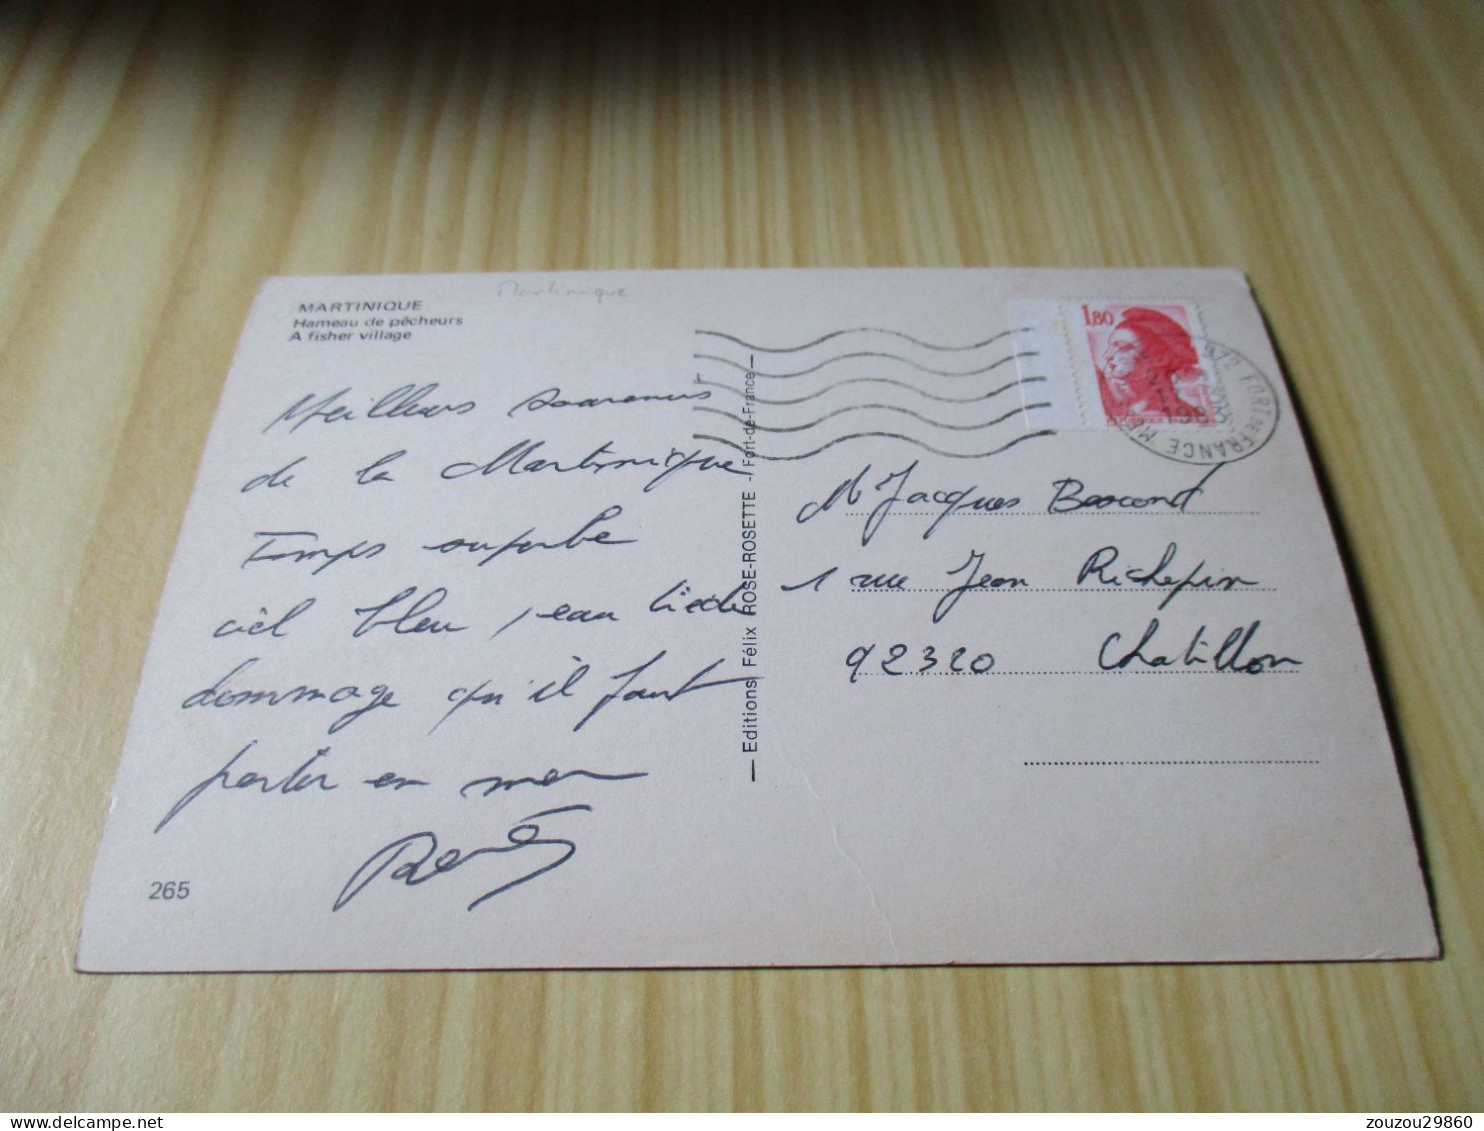 MARTINIQUE
Hameau de pêcheurs
A fisher village
Martinique
1,80
972 FORT DE FRANCE
Meilleurs souvenirs
de la Martinique
Temps superbe
ciel bleu, eau tiède
dommage qu'il faut
partir en mer
René
265
— Editions Félix ROSE-ROSETTE - Fort-de-France —
M Jacques Bescond
1 rue Jean Richepin
92320 Chatillon
zouzou29860